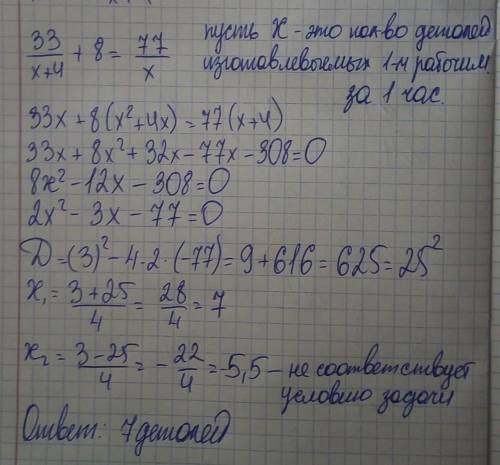 33/(x+4) + 8 = 77/x
пусть х - это кол-во деталей
изготавлевыемых 1-м рабочим
за 1 час.
33x + 8(x²+4x) = 77(x+4)
33x + 8x² + 32x - 77x - 308 = 0
8x² - 12x - 308 = 0
2x² - 3x - 77 = 0
D = (3)² - 4·2·(-77) = 9 + 616 = 625 = 25²
x₁ = (3+25)/4 = 28/4 = 7
x₂ = (3-25)/4 = -22/4 = -5,5 - не соответствует
условию задачи
Ответ: 7 деталей